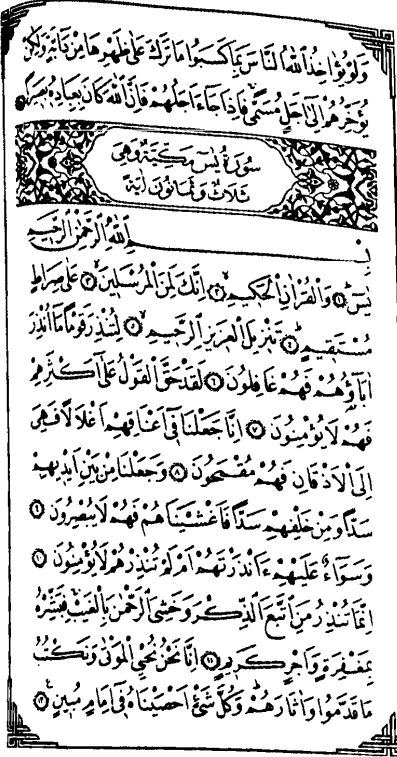 وَلَوْ يُؤَاخِذُ اللّٰهُ النَّاسَ بِمَا كَسَبُوا مَا تَرَكَ عَلٰى ظَهْرِهَا مِنْ دَابَّةٍ وَلٰكِنْ
يُؤَخِّرُهُمْ اِلٰٓى اَجَلٍ مُسَمًّى فَاِذَا جَاءَ اَجَلُهُمْ فَاِنَّ اللّٰهَ كَانَ بِعِبَادِهٖ بَصِيرًا
سُورَةُ يٰسٓ مَكِّيَّةٌ وَهِيَ
ثَلَاثٌ وَثَمَانُونَ اٰيَةً
بِسْمِ اللّٰهِ الرَّحْمٰنِ الرَّحِيمِ
يٰسٓ ١ وَالْقُرْاٰنِ الْحَكِيمِ ٢ اِنَّكَ لَمِنَ الْمُرْسَلِينَ ٣ عَلٰى صِرَاطٍ
مُسْتَقِيمٍ ٤ تَنْزِيلَ الْعَزِيزِ الرَّحِيمِ ٥ لِتُنْذِرَ قَوْمًا مَا اُنْذِرَ
اٰبَاؤُهُمْ فَهُمْ غَافِلُونَ ٦ لَقَدْ حَقَّ الْقَوْلُ عَلٰٓى اَكْثَرِهِمْ
فَهُمْ لَا يُؤْمِنُونَ ٧ اِنَّا جَعَلْنَا فٓى اَعْنَاقِهِمْ اَغْلَالًا فَهِيَ
اِلَى الْاَذْقَانِ فَهُمْ مُقْمَحُونَ ٨ وَجَعَلْنَا مِنْ بَيْنِ اَيْدِيهِمْ
سَدًّا وَمِنْ خَلْفِهِمْ سَدًّا فَاَغْشَيْنَاهُمْ فَهُمْ لَا يُبْصِرُونَ ٩
وَسَوَاءٌ عَلَيْهِمْ ءَاَنْذَرْتَهُمْ اَمْ لَمْ تُنْذِرْهُمْ لَا يُؤْمِنُونَ ١٠
اِنَّمَا تُنْذِرُ مَنِ اتَّبَعَ الذِّكْرَ وَخَشِيَ الرَّحْمٰنَ بِالْغَيْبِ فَبَشِّرْهُ
بِمَغْفِرَةٍ وَاَجْرٍ كَرِيمٍ ١١ اِنَّا نَحْنُ نُحْيِ الْمَوْتٰى وَنَكْتُبُ
مَا قَدَّمُوا وَاٰثَارَهُمْ وَكُلَّ شَيْءٍ اَحْصَيْنَاهُ فٓى اِمَامٍ مُبِينٍ ١٢